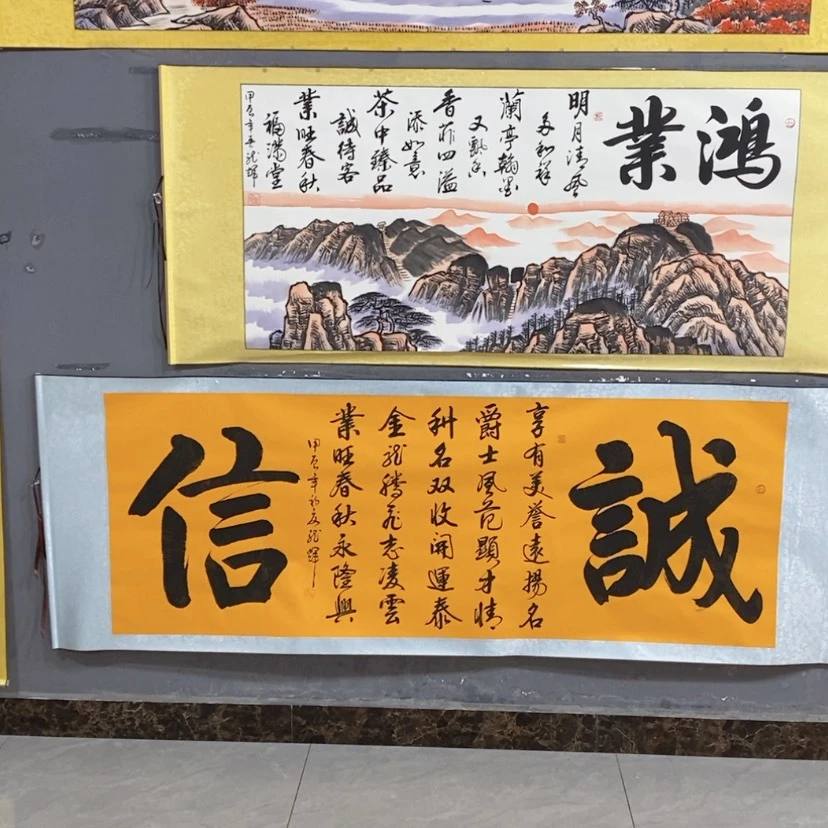 鴻業
明月清風
多和祥
蘭亭翰墨
又飄香
香菲四溢
添如意
茶中臻品
誠待客
業旺春秋
福滿堂
甲辰年
誠
享有美譽遠揚名
爵士風范顯才情
利名双收開運泰
金龍騰飛志凌雲
業旺春秋永隆興
甲辰年初夏龍輝
信